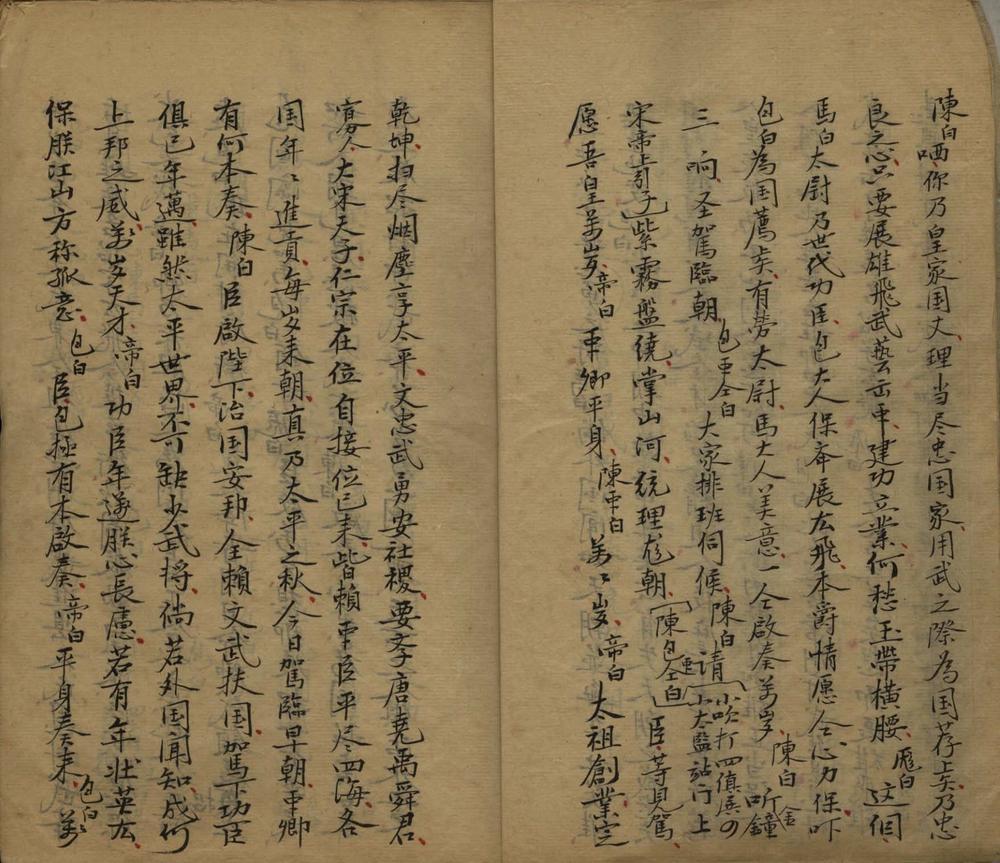 陳白哂你乃皇家国丈理当尽忠国家用武之際為国荐上矣乃忠
良之心只要展雄飛武藝去建功立業何愁玉帶橫腰 白 这個
馬白太尉乃世代功臣包大人保奔展広飛本爵情愿仝心力保吓
包白為国薦矣有劳太尉馬大人美意一仝啟奏萬岁陳白听金鐘
三响圣駕臨朝包仝白大家排班伺候陳白请小吹打四值展の小太監站门上
宋帝上引子紫霧盤繞掌山河統理朝陳包仝白臣等見駕
愿吾皇萬岁帝白卿平身陳白萬〻岁帝白太祖創業定
乾坤扫尽烟塵享太平文忠武勇安社稷要李唐堯禹舜君
寡人大宋天子仁宗在位自接位已来皆賴臣平尽四海各
国年〻進貢每岁来朝真乃太平之秋今日駕臨早朝卿
有何本奏陳白臣啟陛下治国安邦全賴文武扶国駕下功臣
俱已年邁雖然太平世界不可缺少武将倘若外国闻知成何
上邦之威萬岁天才帝白功臣年邁朕心長慮若有年壮英広
保朕江山方称孤意包白臣包拯有本啟奏帝白平身奏来包白萬